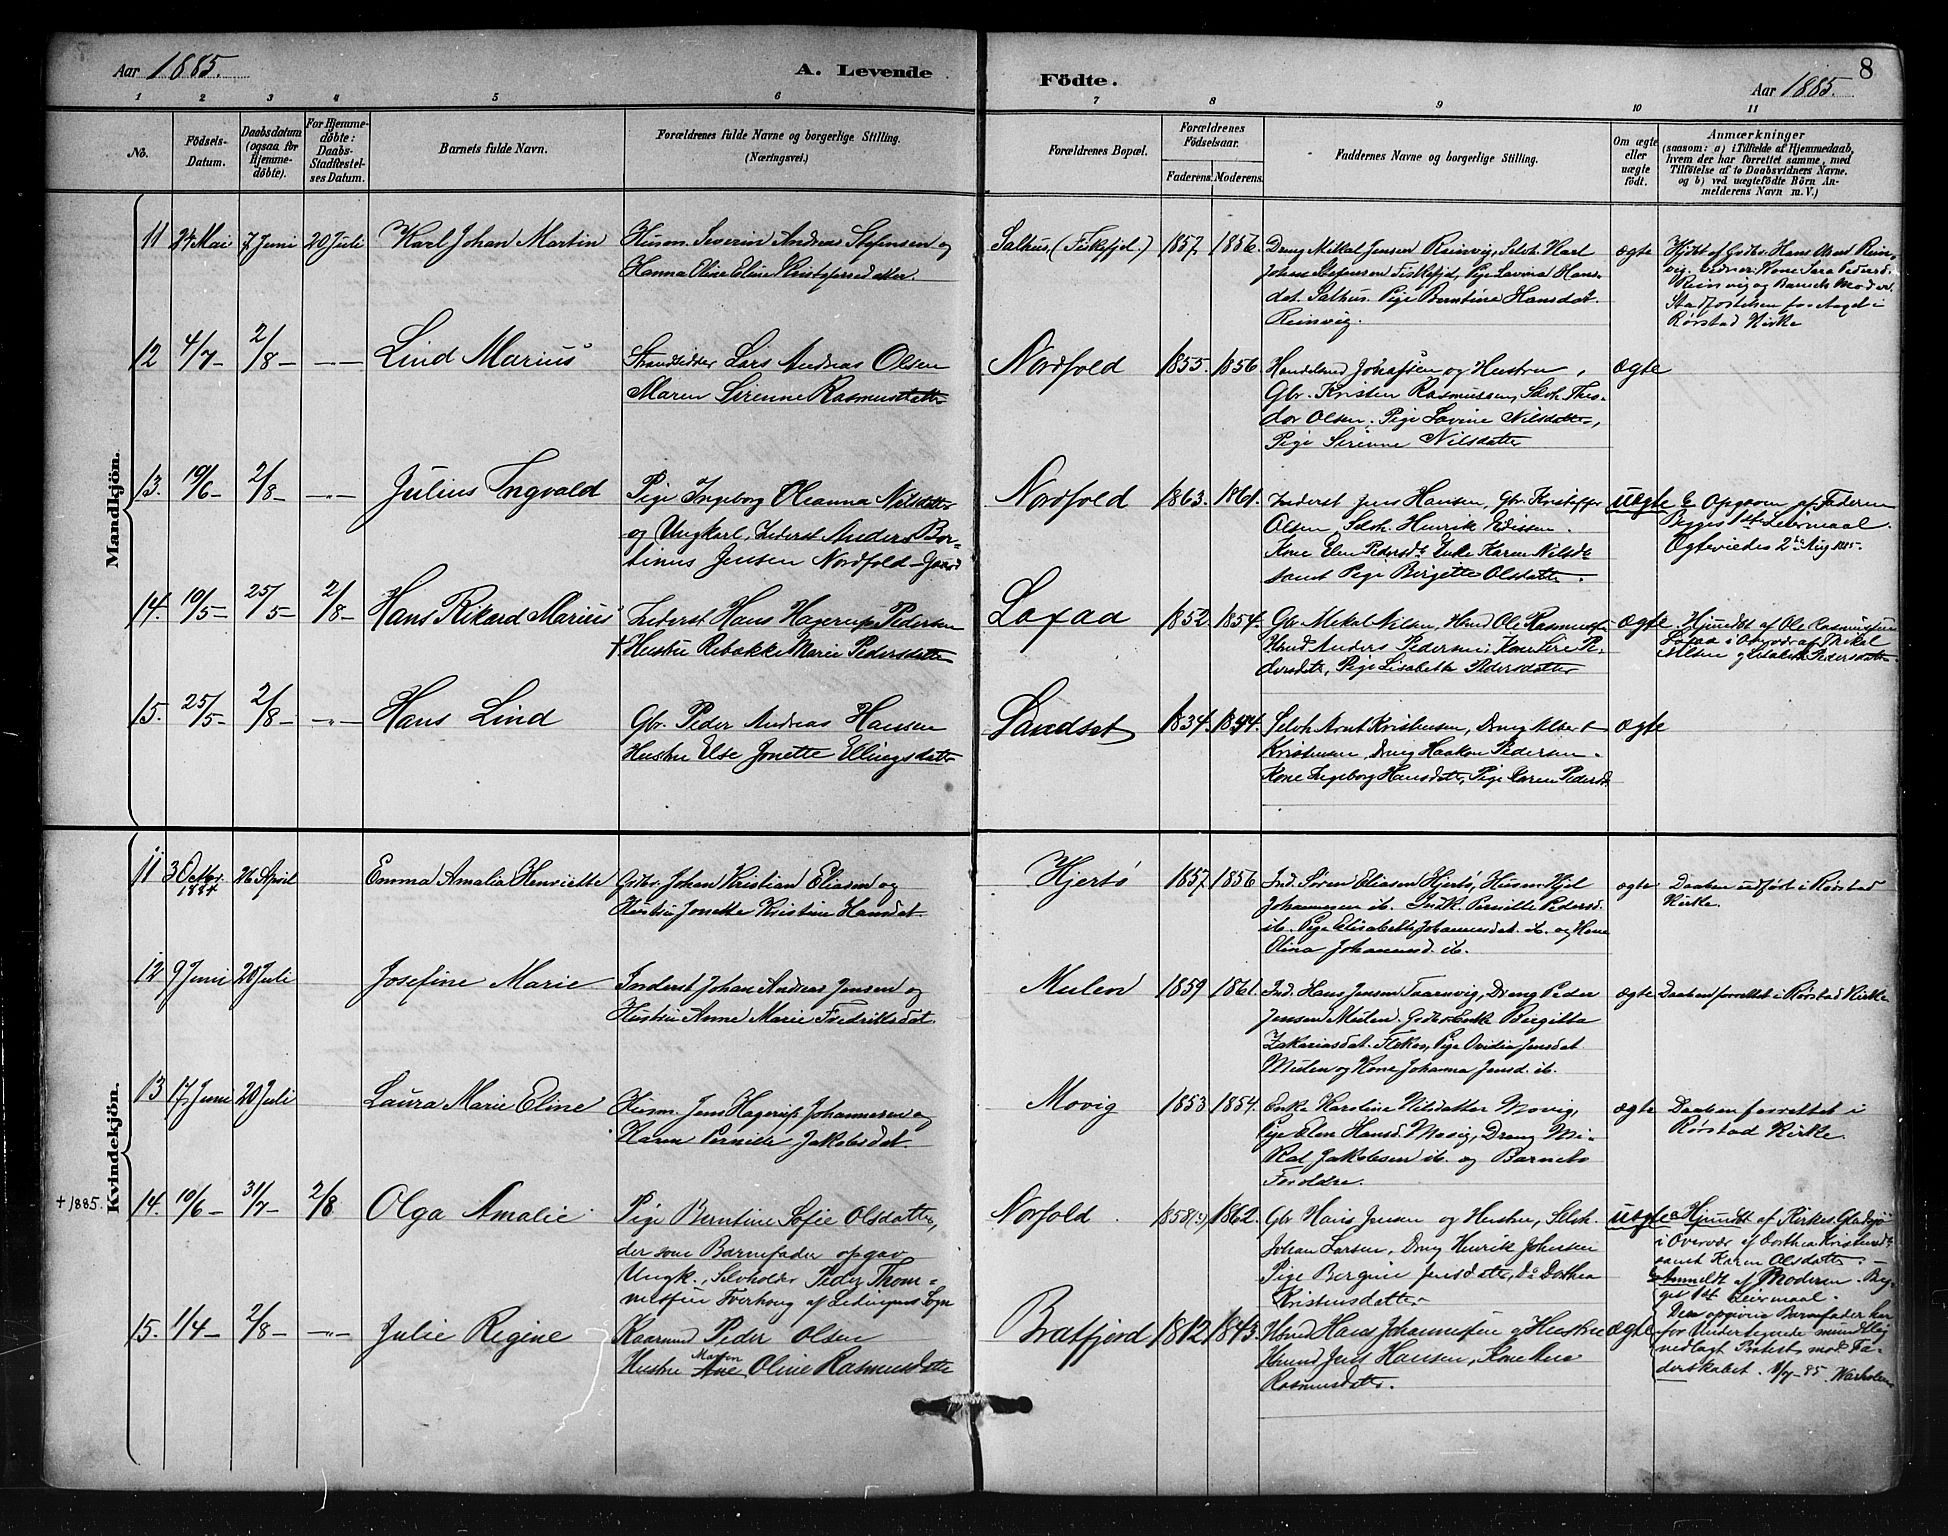 Aar 1885.
A. Levende
Födte.
8
Aar 1885.
1 2 3 4 5 6 7 8 9 10 11
No.
Födsels-
Datum.
Daabsdatum
(ogsaa for
Hjemme-
döbte).
For Hjemme-
döbte:
Daabs-
Stadfæstel-
ses Datum.
Barnets fulde Navn.
Forældrenes fulde Navne og borgerlige Stilling.
(Næringsvei.)
Forældrenes Bopæl.
Forældrenes
Födselsaar.
Faderens. Moderens.
Faddernes Navne og borgerlige Stilling.
Om ægte
eller
uægte
födt.
Anmærkninger
(saasom: a) i Tilfælde af Hjemmedaab,
hvem der har forrettet samme, med
Tilföielse af to Daabsvidners Navne.
og b) ved uægtefödte Börn An-
melderens Navn m. V.)
Mandkjön.
11 27 Mai 7 Juni 20 Juli Karl Johan Martin
Husm. Severin Andreas Stefensen og
Hanna Oline Eline Kristofersdatter.
Salhus, (Fiskfjd.) 1857. 1856.
Dreng Mikal Jensen Reinvig, Selvh. Karl
Johan Stefensen Fiskefjd, Pige Lavina Hans-
dat. Salhus. Pige Berntine Hansdat.
Reinvig.
ægte
Hjdbt af Gdbr. Hans Olsen Rein-
vig. Vidner: Kone Sara Pedersd.
Reinvig og Barnets Moder.
Stadfæstelsen foretaget i
Rørstad Kirke
12 4/7 2/8 Lind Marius
Strandsidder Lars Andreas Olsen
Maren Sirenne Rasmusdatter
Nordfold 1855. 1856.
Handelsmd Johansen og Hustru,
Gbr. Kristen Rasmussen, Selvh. Theo-
dor Olsen. Pige Lovine Nilsdatter,
Pige Serinne Nilsdatter
ægte
13. 19/6 2/8 Julius Ingvald
Pige Ingeborg Oleanna Nilsdatter
og Ungkarl, Inderst Anders Ber-
tinus Jensen Nordfold
Nordfold 1863. 1861.
Inderst Jens Hansen, Gbr. Kristoffer
Olsen, Selvh. Henrik Edissen.
Kone Elen Pedersdt. Enke Karen Nilsdt
samt Pige Birgitte Olsdatter.
uægte
Opgaven af Faderen
Begges 1ste Leiermaal.
Ægteviedes 2de Aug 1885.
14. 10/5 25/5 2/8 Hans Rikard Marius
Inderst Hans Hagerup Pedersen
+ Hustru Rebække Marie Pedersdatter
Lofad 1852. 1854.
Gbr. Mikal Nilsen, Hmd Ole Rasmussen
Hmd Anders Pedersen, Kone Siri Pe-
dersdtr, Pige Lisabeth Pedersdatter
ægte.
Hjmdbt af Ole Rasmussen
Lofaa i Overvær af Mikal
Nilsen og Elisabeth Pedersdatter
15. 25/5 2/8 Hans Lind
Gbr. Peder Andreas Hansen
Hustru Else Jonette Ellingsdatter
Sandset 1834. 1844.
Selvh. Arnt Kristensen, Dreng Albert
Kristensen, Dreng Haakon Pedersen.
Kone Ingeborg Hansdatter, Pige Karen Pedersd.
ægte
Kvindekjön.
11 3 Octbr. 1884 26 April Emma Amalia Henriette
Gdbr. Johan Kristian Eliasen og
Hustru Jonette Kristine Hansdat.
Hjertø 1857. 1856
Ind. Søren Eliasen Hjertø, Husm. Kjel
Johannesen ib. Indk. Pernille Pedersd.
ib. Pige Elisabeth Johannesdat. ib. og Kone
Olina Johannesd. ib.
ægte.
Daaben udført i Rørstad
Kirke.
12 9 Juni 20 Juli Josefine Marie
Inderst Johan Andreas Jensen og
Hustru Anne Marie Fredriksdat.
Mulen 1859 1861.
Ind. Hans Jensen Taarnvig, Dreng Peder
Jensen Mulen. Gdbr. Enke Birgitta
Zakariasdat. Pige Ovidia Jensdat.
Mulen og Kone Johanna Jensd. ib.
ægte
Daaben forrettet i Rørstad Kirke
13 17 Juni 20 Juli Laura Marie Eline
Husm. Jens Hagerup Johannesen og
Karen Pernille Jakobsdat.
Movig 1853 1854.
Enke Karoline Nilsdatter Movig,
Pige Elen Hansd. Movig, Dreng Mi-
kal Jakobsen ib. og Barnets
Foreldre.
ægte
Daaben forrettet i
Rørstad Kirke.
+ 1885. 14. 10/6 31/7 2/8 Olga Amalie
Pige Berntine Sofie Olsdatter,
der som Barnefader opgav
Ungk., Selvholder Peder Thom-
Norfold. 1862.
Gbr Hans Jensen og Hustru, Selvh.
Johan Larsen, Dreng Henrik Johnsen
Pige Bergine Jensdatter, Do Dorthea
Kristensdatter
uægte
a Hjmdbt af Kirkes.
i Overvær af Dorthea Kristensdt.
samt Karen Olsdatter.
b Anmeldt af Moderen. Beg-
ges 1st Leiermaal.
Den opgivne Barnefader har
for Undertegnede mundtlig
nedlagt Protest mod Fa-
derskabet.
15. 1/4 2/8 Julie Regine
Kaarmd Peder Olsen
Hustru Ane Maren Oline Rasmusdatter
Bratfjord 1812. 1843.
Hmd Hans Johannessen og Hustru
Hmd Jens Hansen, Kone
Rasmusdatter.
ægte